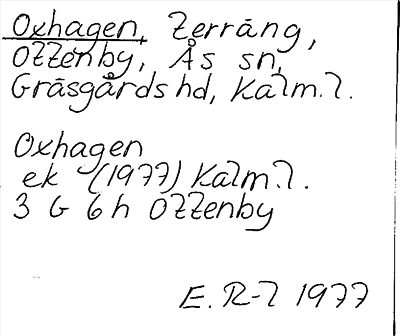 Oxhagen, Terräng,
Ottenby, Ås sn,
Gräsgårds hd, Kalm. l.
Oxhagen
ek (1977) Kalm. l.
3 G 6 h Ottenby
E. R-l 1977